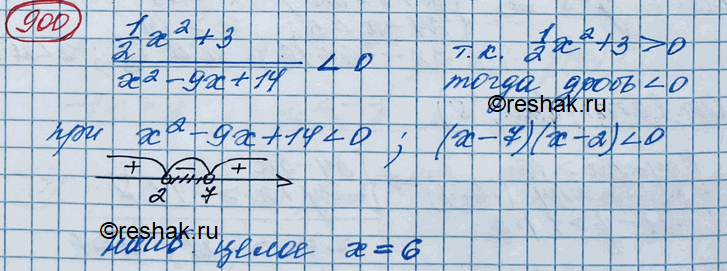 900
(1/2 x² + 3)/(x² - 9x + 14) < 0
т.к. 1/2 x² + 3 > 0
тогда дробь < 0
©reshak.ru
при x² - 9x + 14 < 0 ; (x - 7)(x - 2) < 0
+ +
2 7
©reshak.ru
наиб. целое x = 6